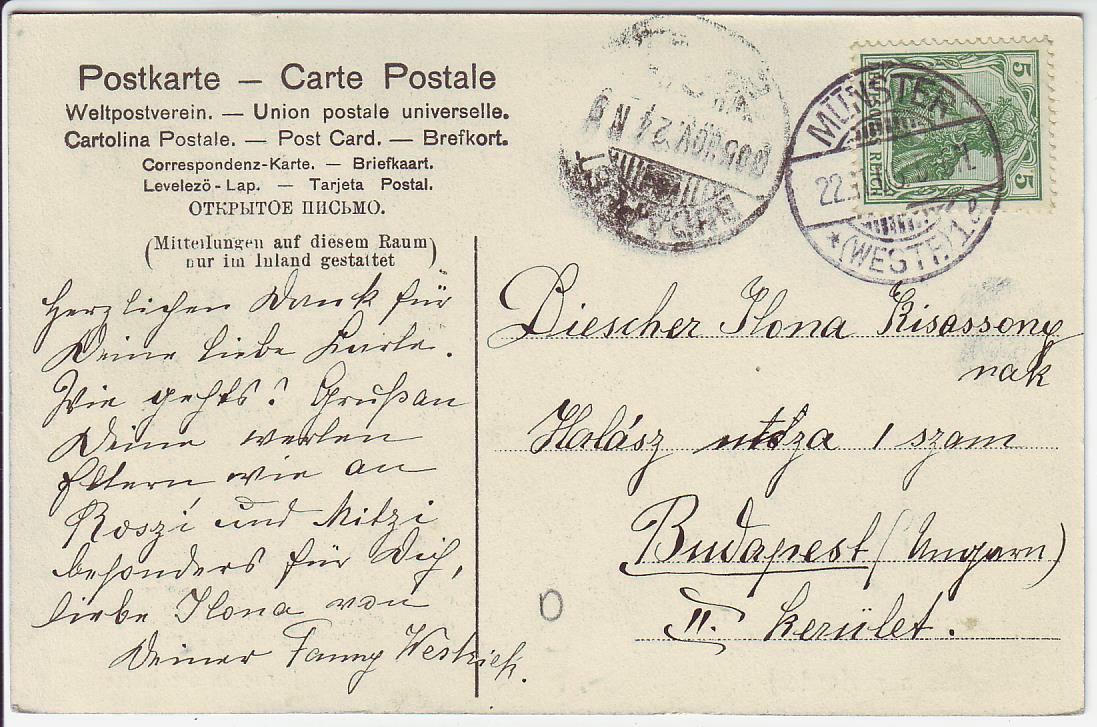 Postkarte – Carte Postale
Weltpostverein. – Union postale universelle.
Cartolina Postale. – Post Card. – Brefkort.
Correspondenz-Karte. – Briefkaart.
Levelezö-Lap. – Tarjeta Postal.
ОТКРЫТОЕ ПИСЬМО.
(Mitteilungen auf diesem Raum
nur im Inland gestattet)
Herzlichen Dank für
Deine liebe Karte.
Wie gehts? Gruß an
Deine werten
Eltern wie an
Roszi und Mitzi
besonders für Dich,
liebe Ilona von
Deiner Fanny
905 NOV 24 N
5 5
REICH
MÜNSTER
22.
*(WESTF.)1
Diescher Ilona Kisassony
nak
Halász utsza 1 szam
Budapest (Ungarn)
II. kerület.